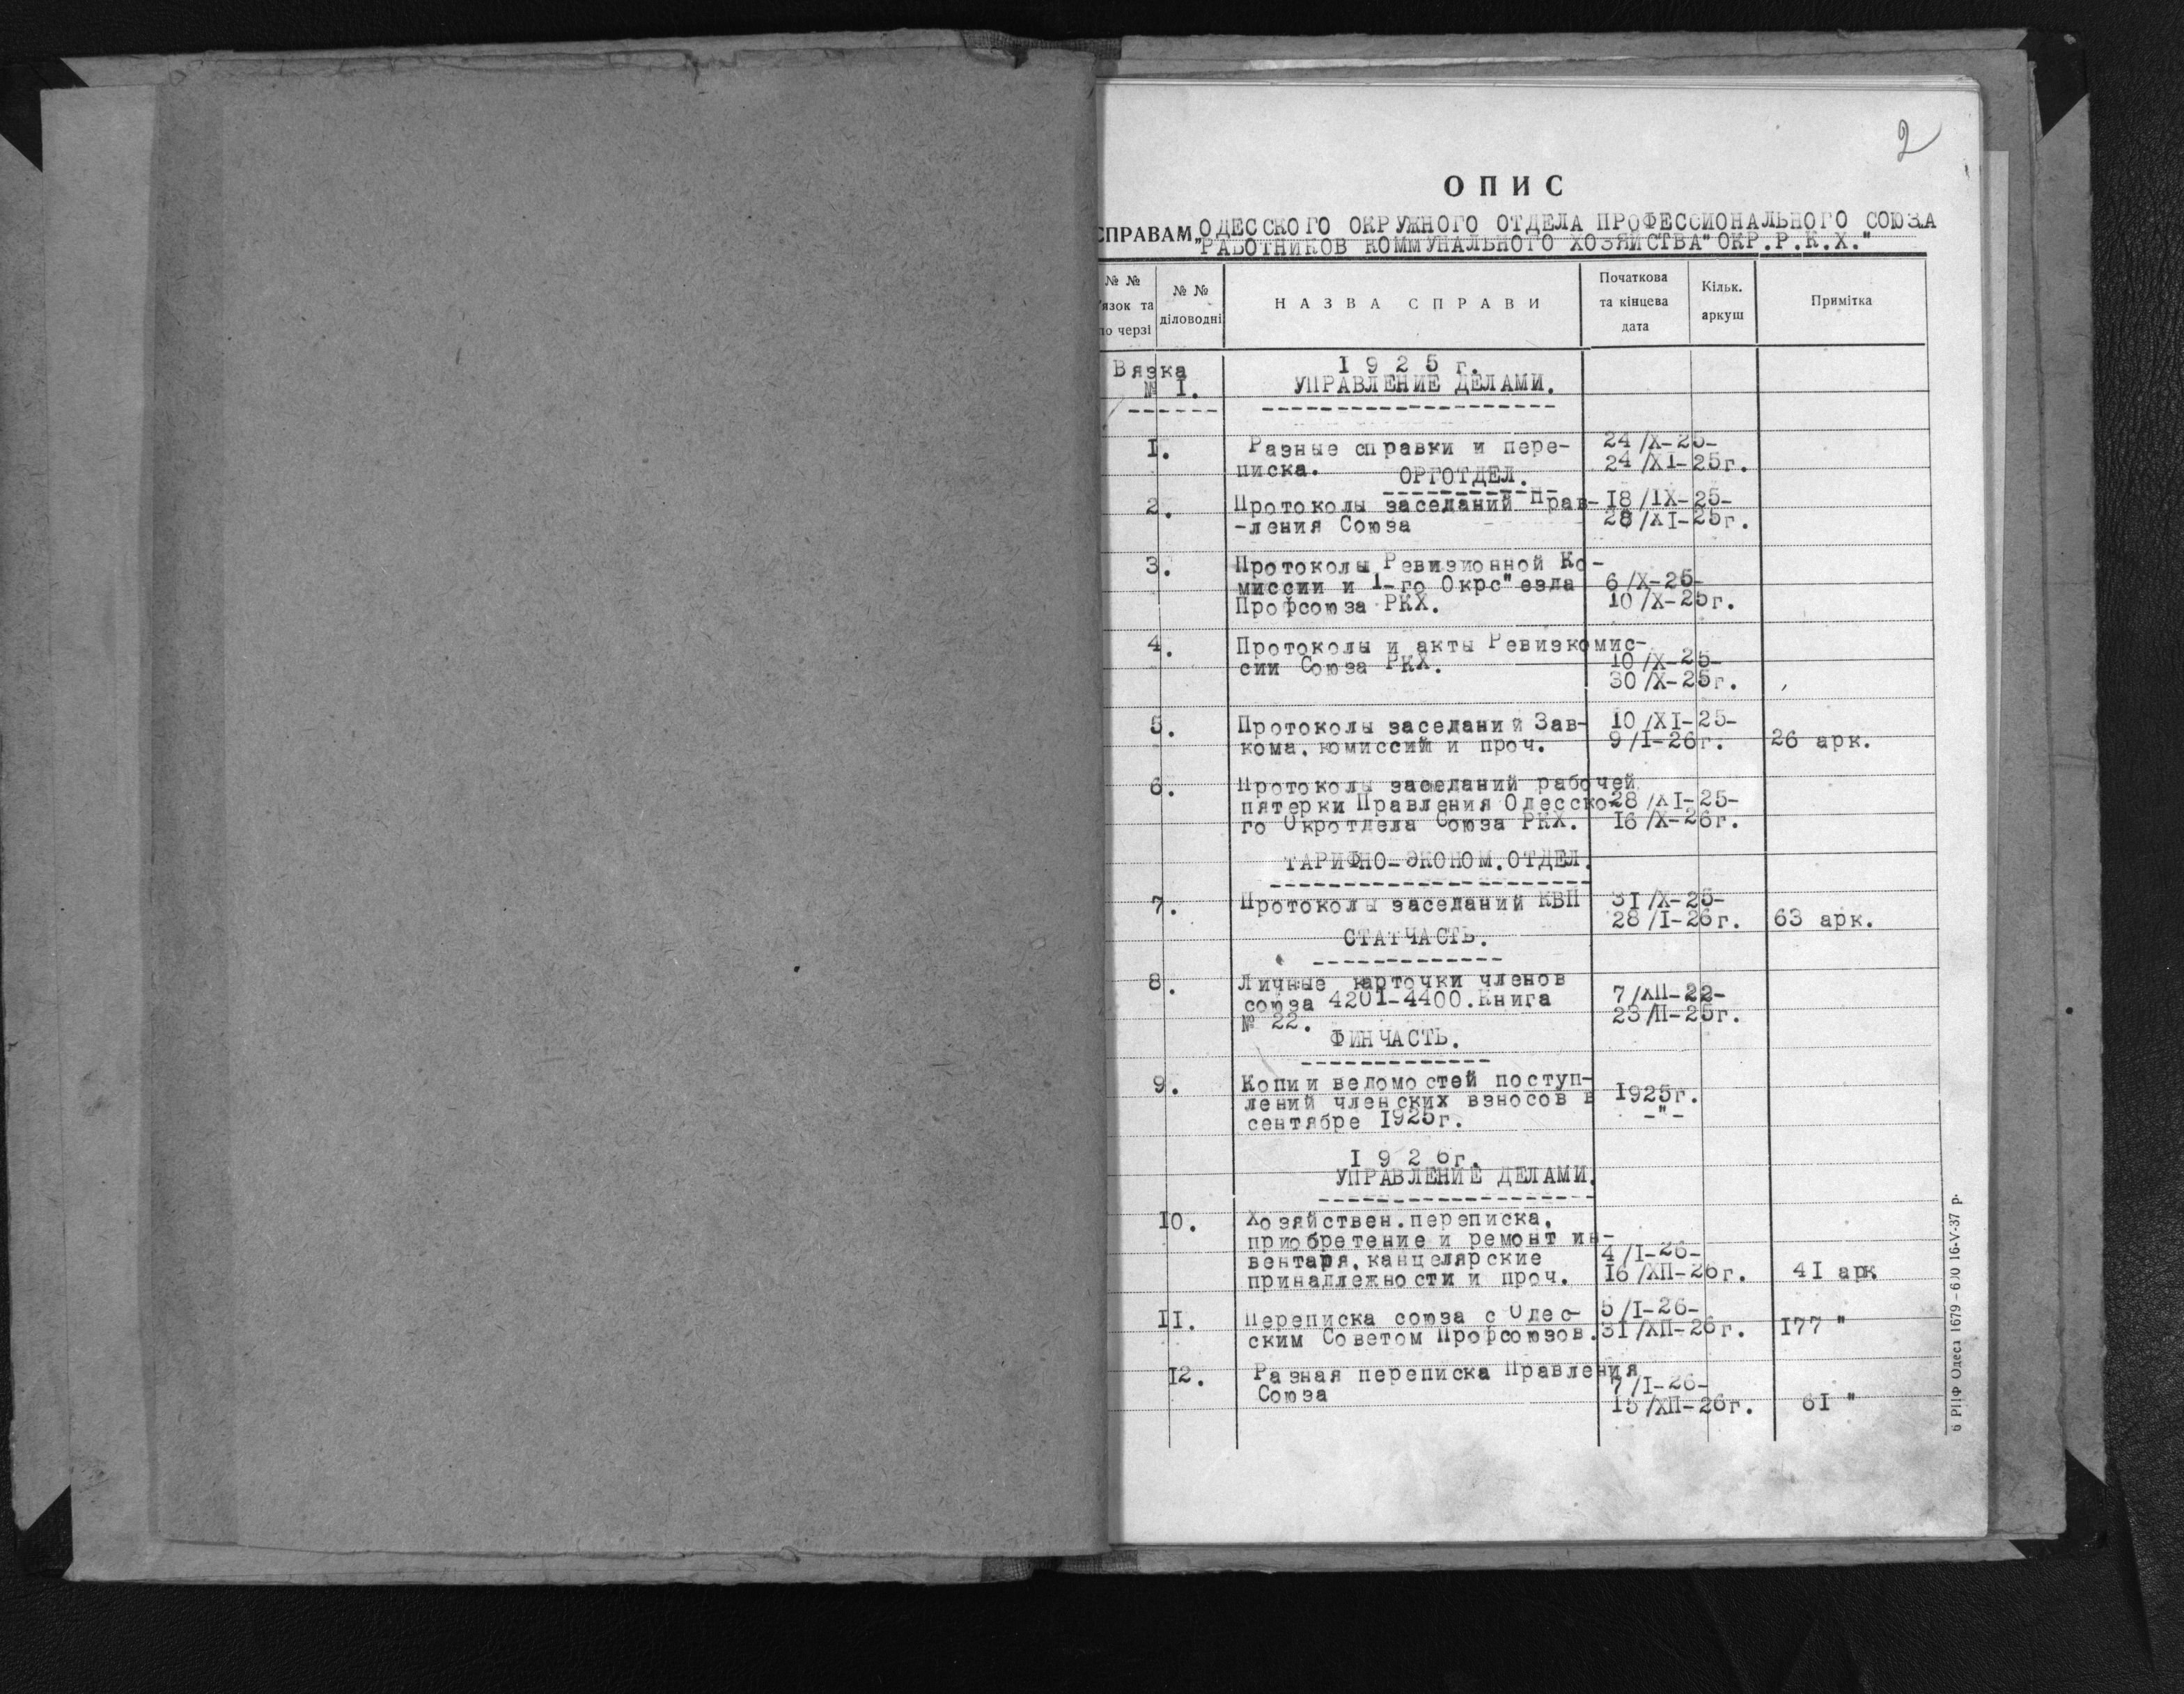 2
ОПИС
СПРАВАМ „ОДЕССКОГО ОКРУЖНОГО ОТДЕЛА ПРОФЕССИОНАЛЬНОГО СОЮЗА
РАБОТНИКОВ КОММУНАЛЬНОГО ХОЗЯЙСТВА" ОКР.Р.К.Х."
№ №
язок та
по черзі
№ №
діловодні
НАЗВА СПРАВИ
Початкова
та кінцева
дата
Кільк.
аркуш
Примітка
Вязка
№ I.
I 9 2 5 г.
УПРАВЛЕНИЕ ДЕЛАМИ.
I. Разные справки и пере- 24/X-25-
писка. 24/XI-25г.
ОРГОТДЕЛ.
2. Протоколы заседаний Прав- 18/IX-25-
-ления Союза 28/XI-25г.
3. Протоколы Ревизионной Ко-
миссии и I-го Окрс"езда 6/X-25-
Профсоюза РКХ. 10/X-25г.
4. Протоколы и акты Ревизкомис-
сии Союза РКХ. 10/X-25-
30/X-25г.
5. Протоколы заседаний Зав- 10/XI-25-
кома, комиссий и проч. 9/I-26г. 26 арк.
6. Протоколы заседаний рабочей
пятерки Правления Одесско- 28/XI-25-
го Окротдела Союза РКХ. 16/X-26г.
ТАРИФНО-ЭКОНОМ.ОТДЕЛ.
7. Протоколы заседаний КВП 31/X-25-
28/I-26г. 63 арк.
СТАТЧАСТЬ.
8. Личные карточки членов
союза 4201-4400. Книга 7/XII-22-
№ 22. 23/II-25г.
ФИНЧАСТЬ.
9. Копии ведомостей поступ-
лений членских взносов в 1925г.
сентябре 1925г. -"-
I 9 2 6г.
УПРАВЛЕНИЕ ДЕЛАМИ.
10. Хозяйствен.переписка,
приобретение и ремонт ин-
вентаря, канцелярские 4/I-26-
принадлежности и проч. 16/XII-26г. 41 арк
11. Переписка союза с Одес- 5/I-26-
ским Советом Профсоюзов. 31/XII-26г. 177 "
12. Разная переписка Правления
Союза 7/I-26-
15/XII-26г. 61 "
РПФ Одеса 1679 - 600 16-V-37 р.